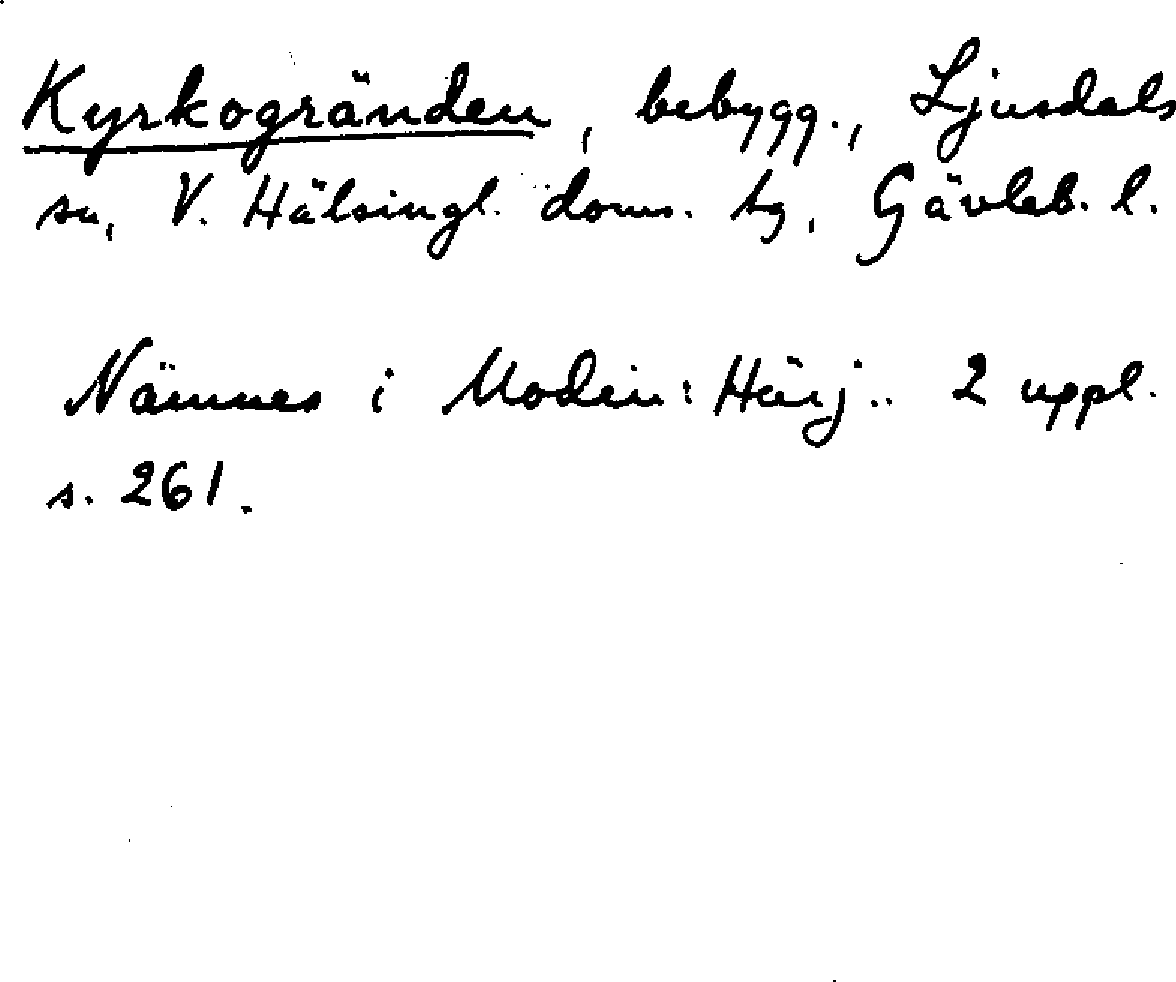 Kyrkogränden, bebygg., Ljusdals
sn, V. Hälsingl. doms. tg, Gävleb. l.
Nämnes i Modin: Härj.. 2 uppl.
s. 261.